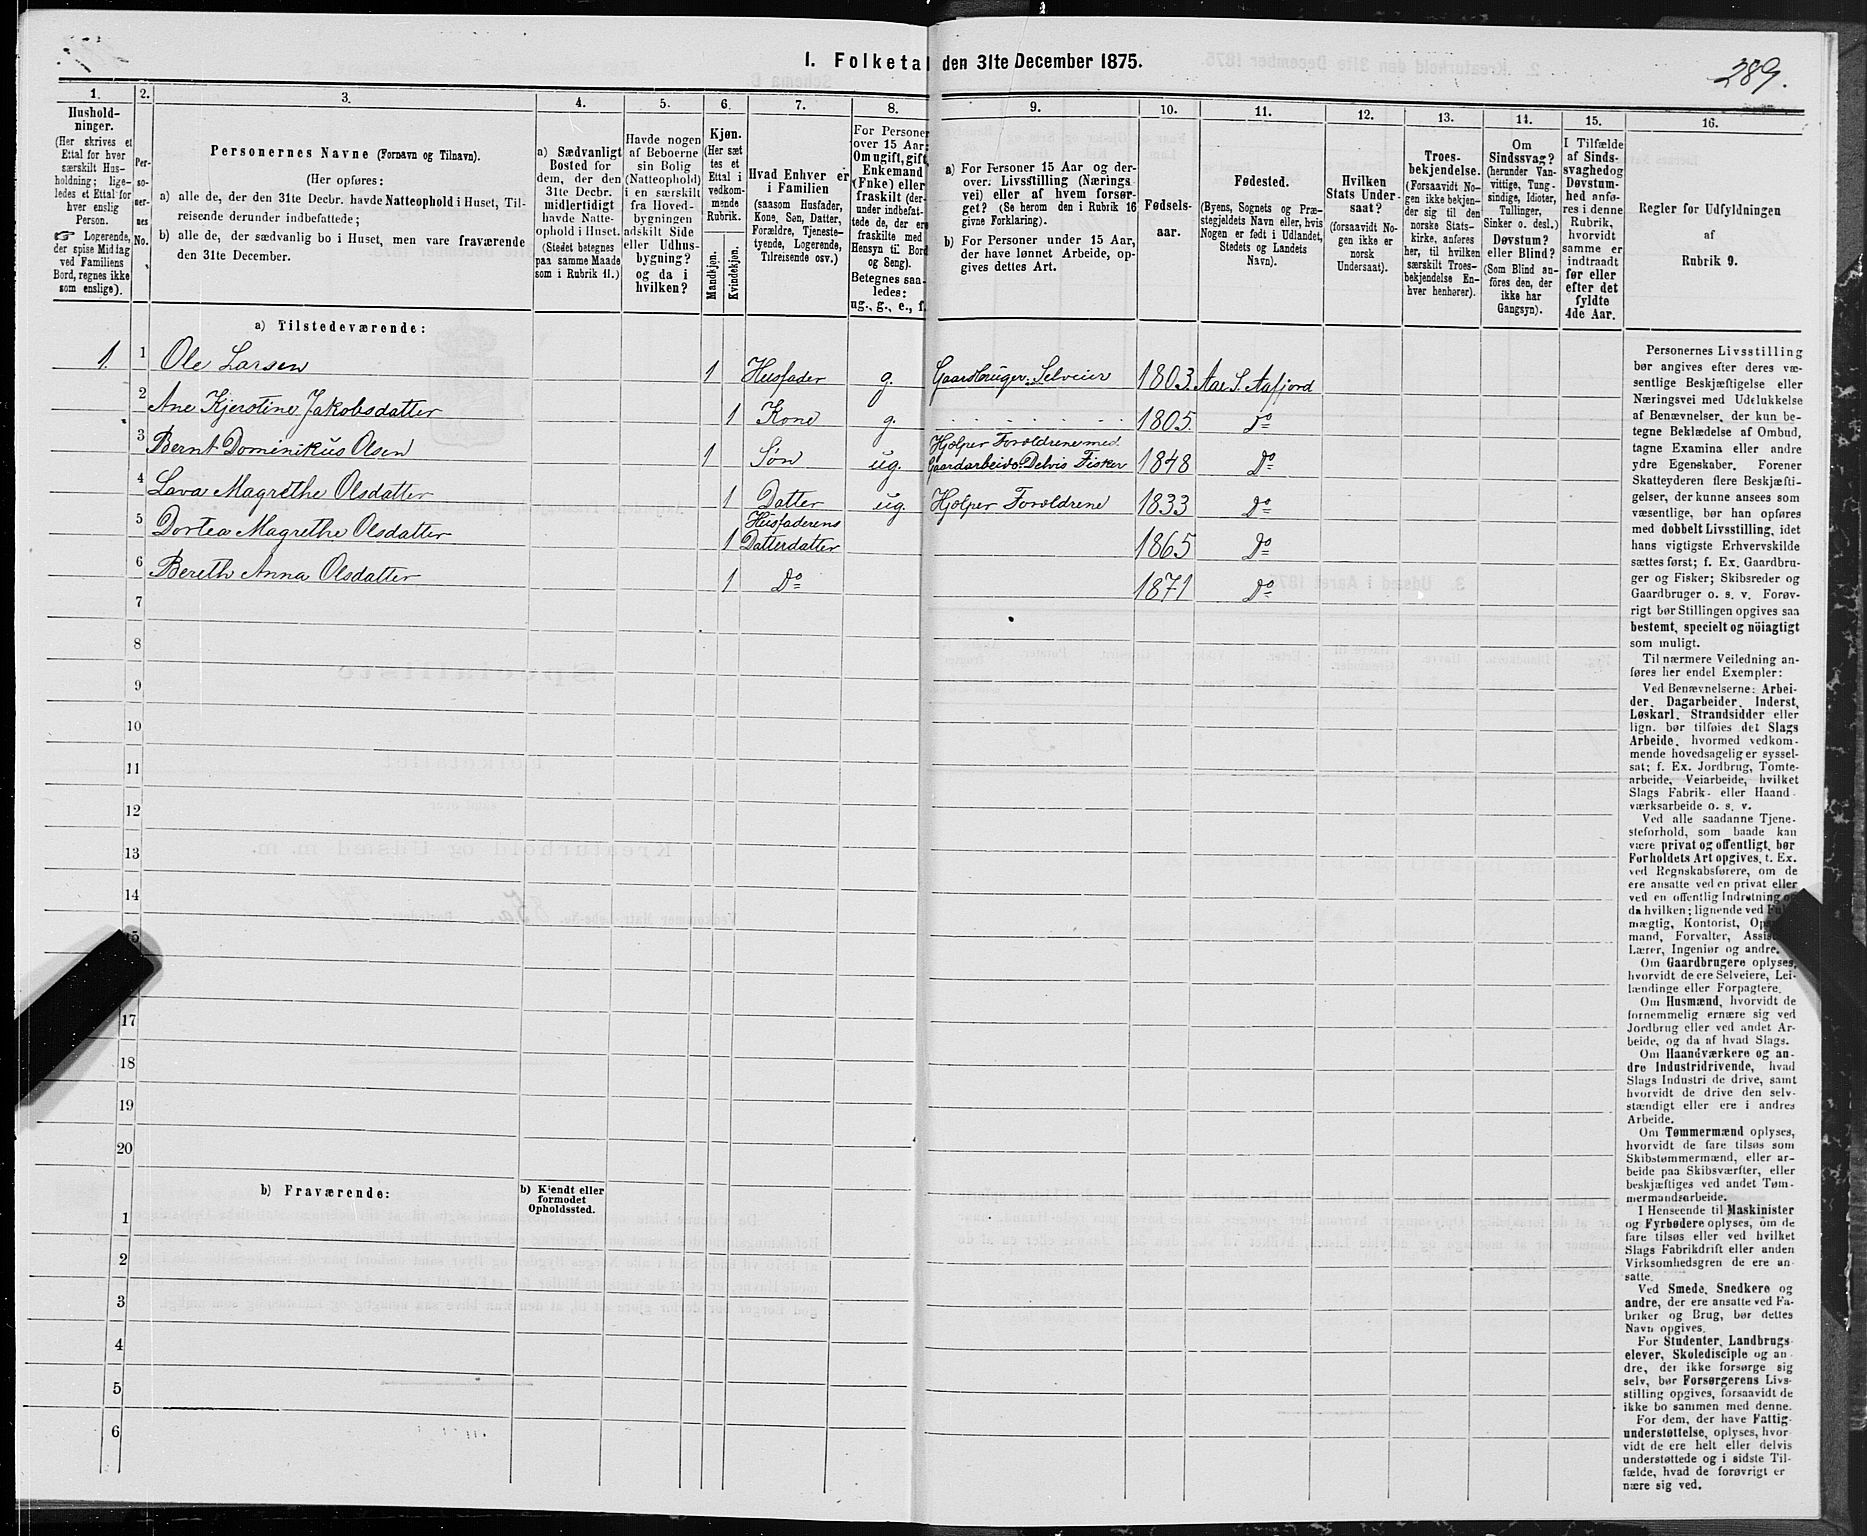 1. Folketal den 31te December 1875.
289.
1.
Hushold-
ninger.
(Her skrives et
Ettal for hver
særskilt Hus-
holdning; lige-
ledes et Ettal for
hver enslig
Person.
Logerende,
der spise Middag
ved Familiens
Bord, regnes ikke
som enslige).
2.
Per-
so-
ner-
nes
No.
3.
Personernes Navne (Fornavn og Tilnavn).
(Her opføres:
a) alle de, der den 31te Decbr. havde Natteophold i Huset, Til-
reisende derunder indbefattede;
b) alle de, der sædvanlig bo i Huset, men vare fraværende
den 31te December.
4.
a) Sædvanligt
Bosted for
dem, der den
31te Decbr.
midlertidigt
havde Natte-
ophold i Huset.
(Stedet betegnes
paa samme Maade
som i Rubrik 11.)
5.
Havde nogen
af Beboerne
sin Bolig
(Natteophold)
i en særskilt
fra Hoved-
bygningen
adskilt Side
eller Udhus-
bygning?
og da i
hvilken?
6.
Kjøn.
(Her sæt
tes et
Ettal i
vedkom-
mende
Rubrik.
Mandkjøn.
Kvindekjøn.
7.
Hvad Enhver er
i Familien
(saasom Husfader,
Kone, Søn, Datter,
Forældre, Tjeneste-
tyende, Logerende,
Tilreisende osv.)
8.
For Personer
over 15 Aar:
Om ugift, gift,
Enkemand
(Enke) eller
fraskilt (der-
under indbefat-
tede de, der ere
fraskilte med
Hensyn til Bord
og Seng).
Betegnes saa-
ledes:
ug., g., e., f.
9.
a) For Personer 15 Aar og der-
over: Livsstilling (Nærings
vei) eller af hvem forsør-
get? (Se herom den i Rubrik 16
givne Forklaring).
b) For Personer under 15 Aar,
der have lønnet Arbeide, op-
gives dettes Art.
10.
Fødsels-
aar.
11.
Fødested.
(Byens, Sognets og Præ-
stegjeldets Navn eller, hvis
Nogen er født i Udlandet,
Stedets og Landets
Navn).
12.
Hvilken
Stats Under-
saat?
(forsaavidt No-
gen ikke er
norsk
Undersaat).
13.
Troes-
bekjendelse.
(Forsaavidt No-
gen ikke bekjen-
der sig til den
norske Stats-
kirke, anføres
her, til hvilken
særskilt Troes-
bekjendelse En-
hver henhører).
14.
Om
Sindssvag?
(herunder Van-
vittige, Tung-
sindige, Idioter,
Tullinger,
Sinker o. desl.)
Døvstum?
eller Blind?
(Som Blind an-
føres den, der
ikke har
Gangsyn).
15.
I Tilfælde
af Sinds-
svaghed og
Døvstum-
hed anfø-
res i denne
Rubrik,
hvorvidt
samme er
indtraadt
før eller
efter det
fyldte
4de Aar.
16.
Regler for Udfyldningen
af
Rubrik 9.
a) Tilstedeværende:
1. 1 Ole Larsen 1 Husfader g. Gaardbruger Selveier 1803 Aae S. Aafjord
2 Ane Kjerstine Jakobsdatter 1 Kone g. 1805. Do
3 Bernt Dominikus Olsen 1 Søn ug. Hjælper Forældrene med Gaardarbeide. Delvis Fisker 1848 Do
4 Lava Magrethe Olsdatter 1 Datter ug. Hjælper Forældrene 1833 Do
5 Dortea Magrethe Olsdatter 1 Husfaderens Datterdatter 1865 Do
6 Bereth Anna Olsdatter 1 Do 1871 Do
7
8
9
10
11
12
13
14
15
17
18
19
20
b) Fraværende:
b) Kjendt eller
formodet
Opholdssted.
1
2
3
4
5
6
Personernes Livsstilling
bør angives efter deres væ-
sentlige Beskjæftigelse eller
Næringsvei med Udelukkelse
af Benævnelser, der kun be-
tegne Beklædelse af Ombud,
tagne Examina eller andre
ydre Egenskaber. Forener
Skatteyderen flere Beskjæfti-
gelser, der kunne ansees som
væsentlige, bør han opføres
med dobbelt Livsstilling, idet
hans vigtigste Erhvervskilde
sættes først; f. Ex. Gaardbru-
ger og Fisker; Skibsreder og
Gaardbruger o. s. v. Forøv-
rigt bør Stillingen opgives saa
bestemt, specielt og nöiagtigt
som muligt.
Til nærmere Veiledning an-
føres her endel Exempler:
Ved Benævnelserne: Arbei-
der, Dagarbeider, Inderst,
Løskarl, Strandsidder eller
lign. bør tilføies det Slags
Arbeide, hvormed vedkom-
mende hovedsagelig er syssel-
sat; f. Ex. Jordbrug, Tomte-
arbeide, Veiarbeide, hvilket
Slags Fabrik- eller Haand-
værksarbeide o. s. v.
Ved alle saadanne Tjene-
steforhold, som baade kan
være privat og offentligt, bør
Forholdets Art opgives, t. Ex.
ved Regnskabsførere, om de
ere ansatte ved en privat eller
ved en offentlig Indretning og
da hvilken; lignende ved
mægtig, Kontorist,
mand, Forvalter,
Lærer, Ingeniør og andre.
Om Gaardbrugere oplyses,
hvorvidt de ere Selveiere, Lei-
lændinge eller Forpagtere.
Om Husmænd, hvorvidt de
fornemmelig ernære sig ved
Jordbrug eller ved andet Ar-
beide, og da af hvad Slags.
Om Haandværkere og an-
dre Industridrivende, hvad
Slags Industri de drive, samt
hvorvidt de drive den selv-
stændigt eller ere i andres
Arbeide.
Om Tømmermænd oplyses,
hvorvidt de fare tilsøs som
Skibstømmermænd, eller ar-
beide paa Skibsværfter, eller
beskjæftiges ved andet Tøm-
mermandsarbeide.
I Henseende til Maskinister
og Fyrbødere oplyses, om de
fare tilsøs eller ved hvilket
Slags Fabrikdrift eller anden
Virksomhedsgren de ere an-
satte.
Ved Smede, Snedkere og
andre, der ere ansatte ved Fa-
briker og Brug, bør dettes
Navn opgives.
For Studenter, Landbrugs-
elever, Skoledisciple og an-
dre, der ikke forsørge sig
selv, bør Forsørgerens Livs-
stilling opgives, forsaavidt de
ikke bo sammen med denne.
For dem, der have Fattig-
understøttelse, oplyses, hvor-
vidt de ere helt eller delvis
understøttede og i sidste Til-
fælde, hvad de forøvrigt er
nære sig ved.